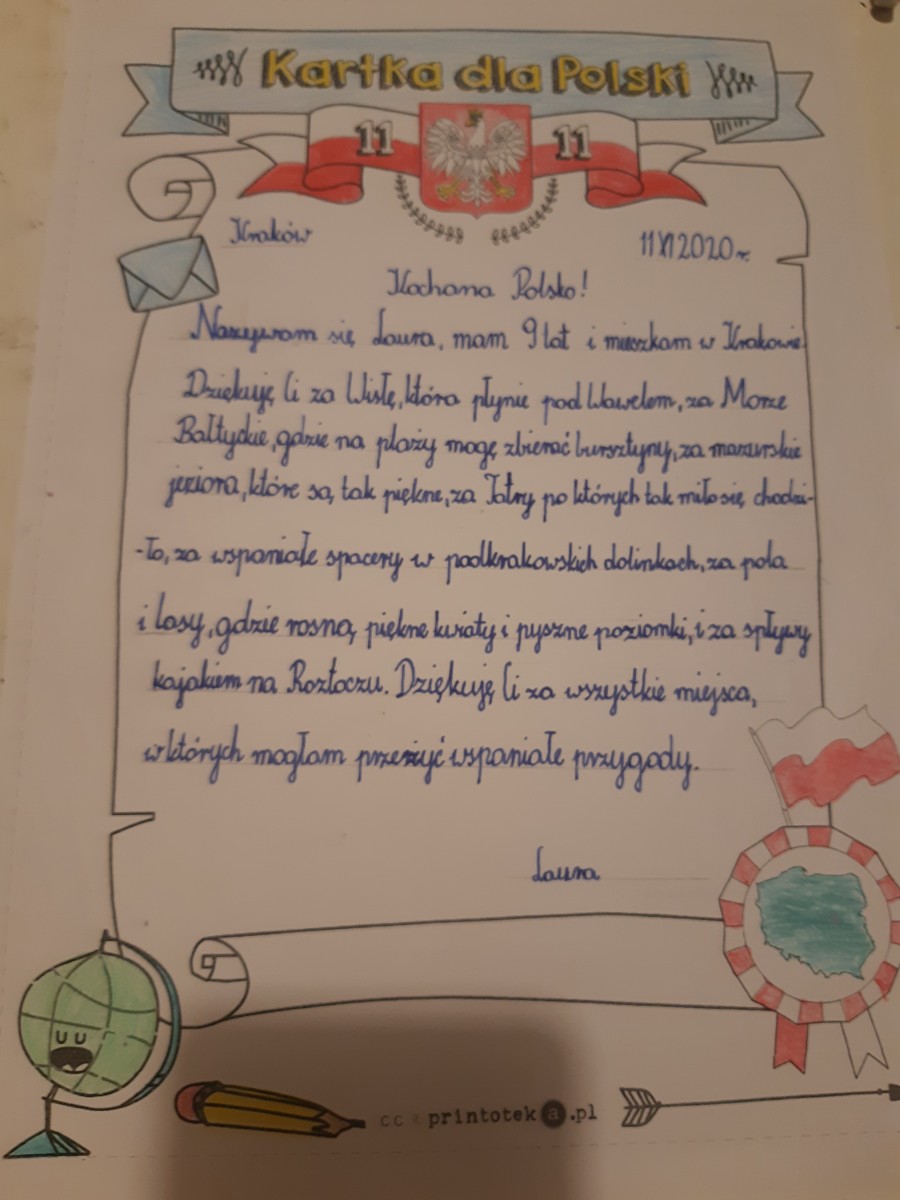 Kartka dla Polski
11 11
Kraków 11 XI 2020 r.
Kochana Polsko!
Nazywam się Laura, mam 9 lat i mieszkam w Krakowie.
Dziękuję Ci za Wisłę, która płynie pod Wawelem, za Morze
Bałtyckie, gdzie na plaży mogę zbierać bursztyny, za mazurskie
jeziora, które są tak piękne, za Tatry po których tak miło się chodzi-
-ło, za wspaniałe spacery w podkrakowskich dolinkach, za pola
i lasy, gdzie rosną piękne kwiaty i pyszne poziomki, i za spływy
kajakiem na Roztoczu. Dziękuję Ci za wszystkie miejsca,
w których mogłam przeżyć wspaniałe przygody.
Laura
printoteka.pl